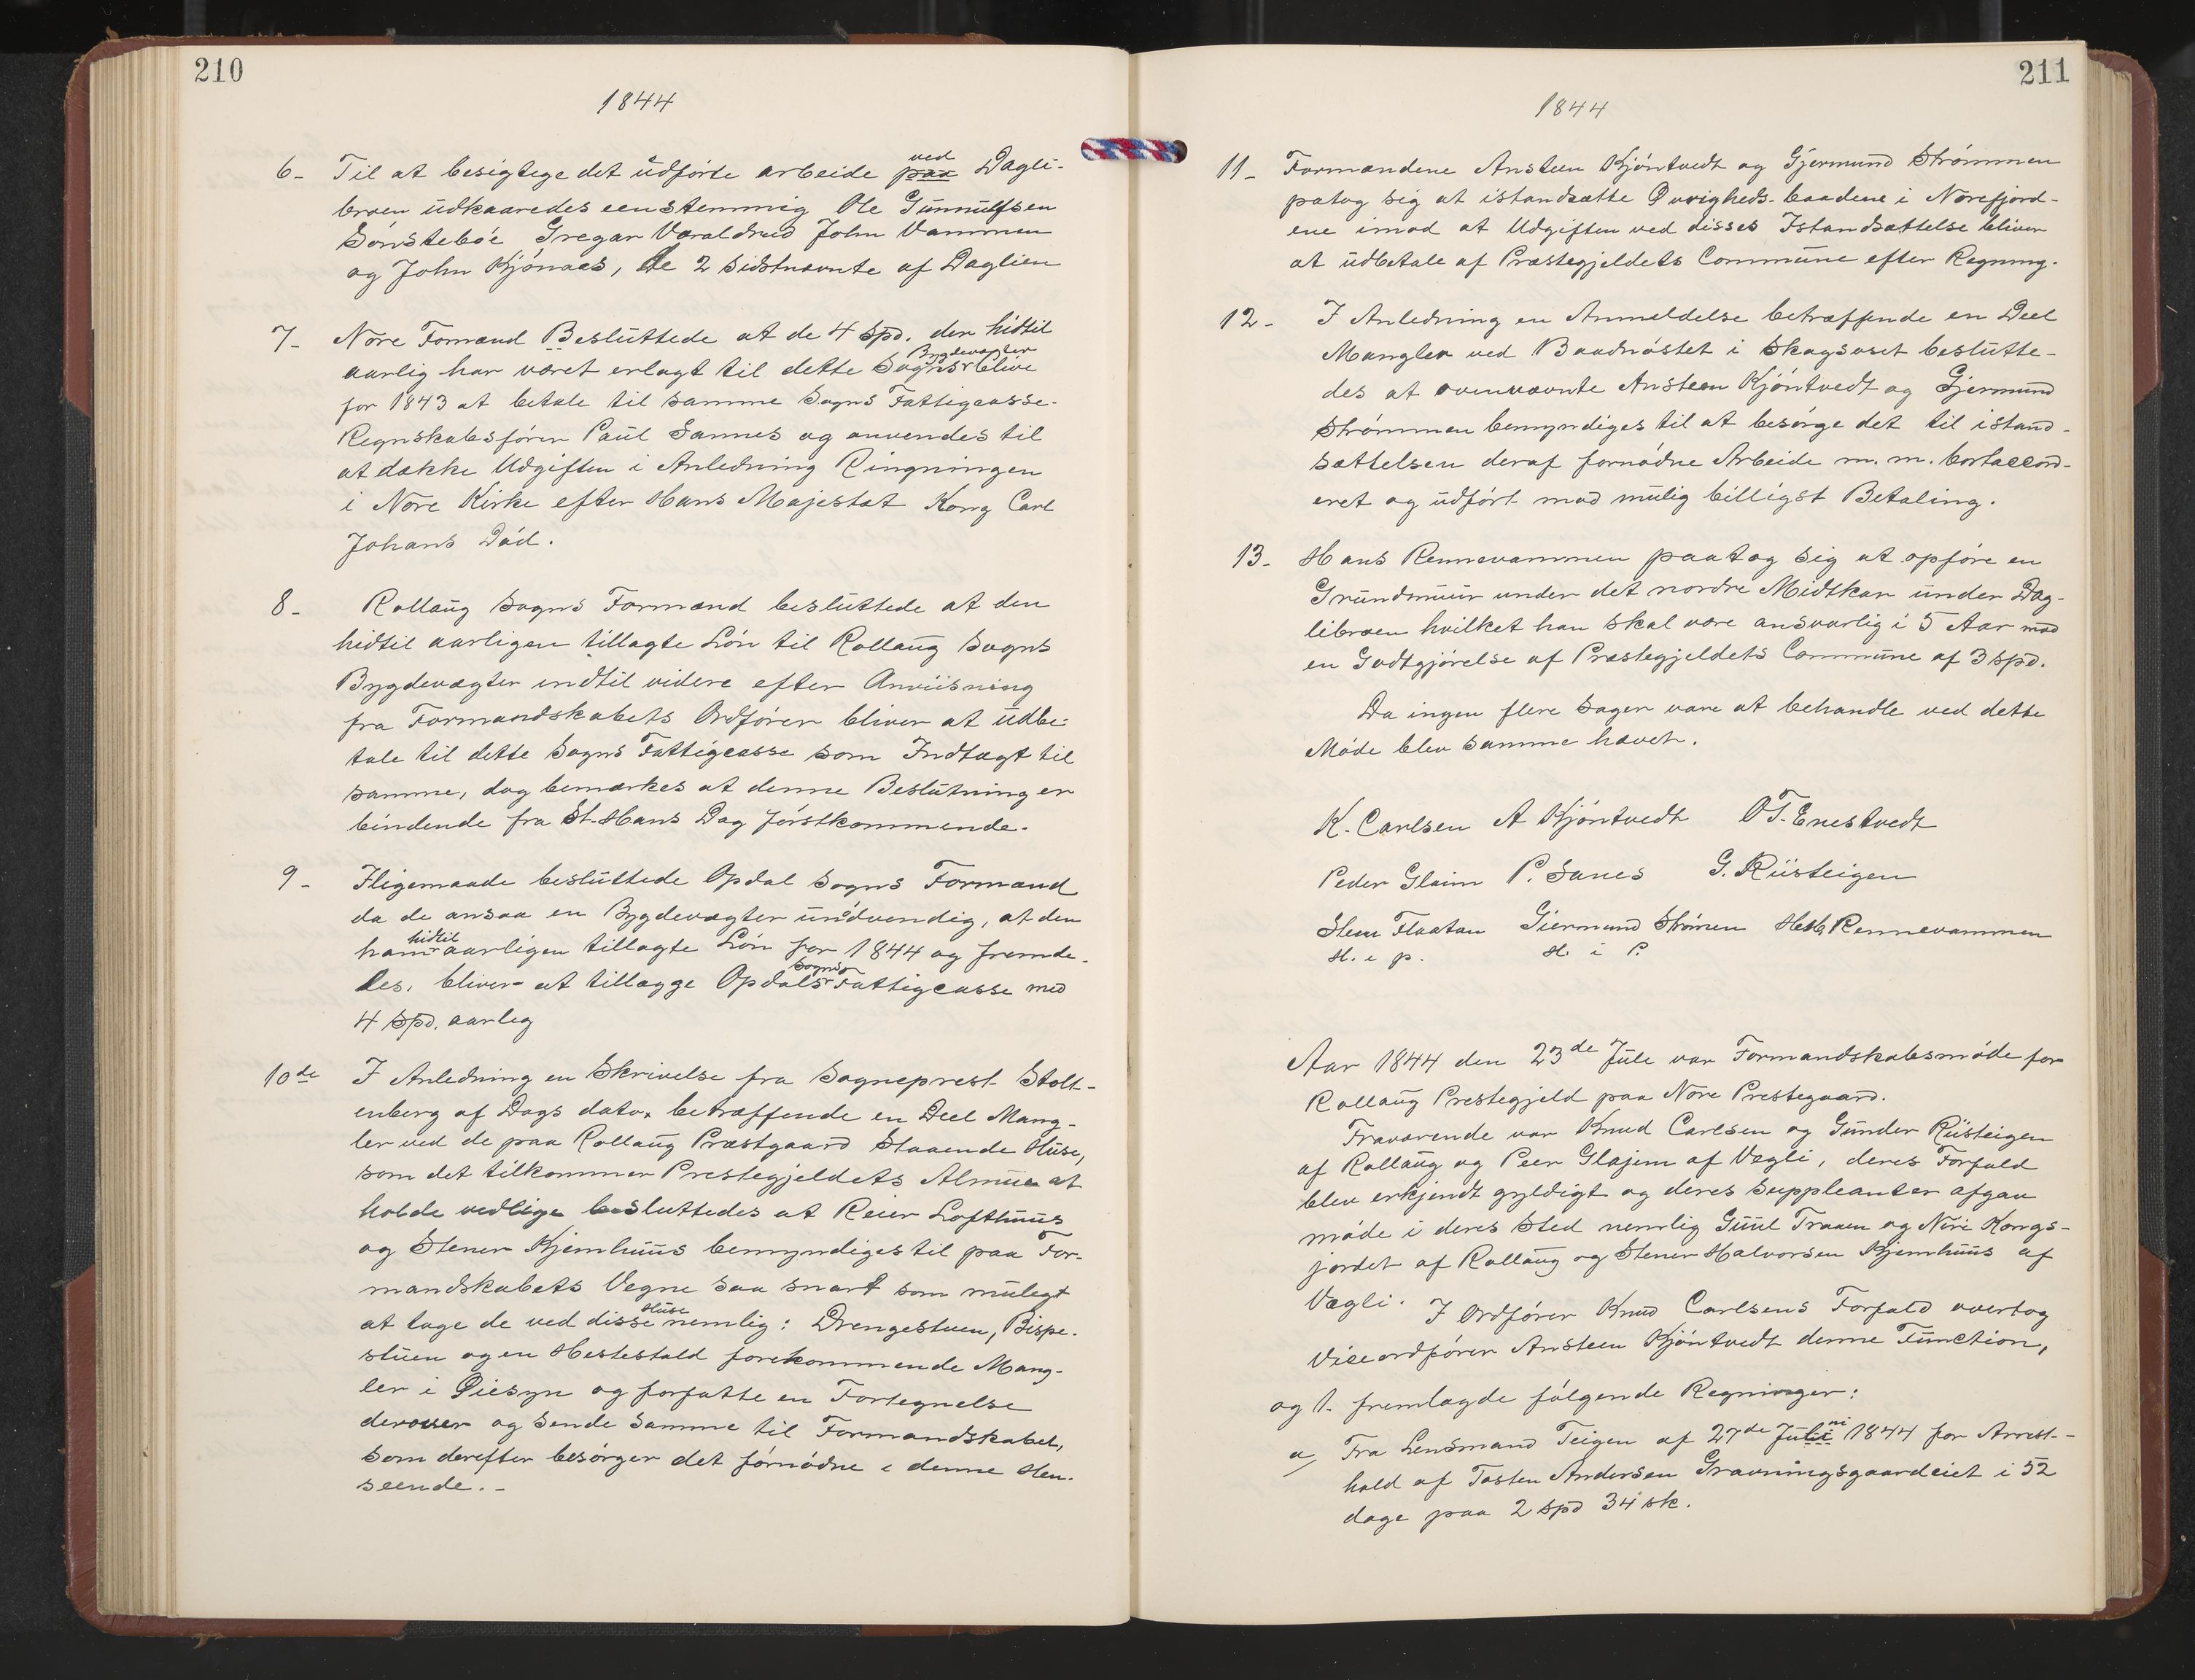 210
1844
6- Til at besigtige det udførte arbeide paa ved Dagli-
broen udkaaredes eenstemmig Ole Gunnulfsen
Sønsteböe Gregar Varaldrud John Vammen
og John Kjönaas, de 2 sidstnævnte af Daglien
7- Nore Formænd Besluttede at de 4 Spd. der hidtil
aarlig har været erlagt til dette Sogns Bygdevægter blive
for 1843 at betale til samme Sogns Fattigcasse-
Regnskabsfører Paul Sannes og anvendes til
at dække Udgiften i Anledning Ringningen
i Nore Kirke efter Hans Majestæt Kong Carl
Johans Död.
8- Rollaug Sogns Formænd besluttede at den
hidtil aarligen tillagte Lön til Rollaug Sogns
Bygdevægter indtil videre efter Anviisning
fra Formandskabets Ordförer bliver at udbe-
tale til dette Sogns Fattigcasse som Indtægt til
samme, dog bemærkes at denne Beslutning er
bindende fra St. Hans Dag förstkommende.
9- Iligemaade besluttede Opdal Sogns Formænd
da de ansaa en Bygdevægter unödvendig, at den
ham hidtil aarligen tillagte Lön for 1844 og fremde-
les, bliver at tillægge Opdals Sogns Fattigcasse med
4 Spd. aarleg
10de I Anledning en Skrivelse fra Sogneprest Stolt-
enberg af Dags dato, betræffende en Deel Mang-
ler ved de paa Rollaug Præstgaard Staaende Huse,
som det tilkommer Prestegjeldets Almue at
holde vedlige besluttedes at Reier Lofthuus
og Stener Kjemhuus bemyndiges til paa For-
mandskabets Vegne saa snart som mulegt
at tage de ved disse Huse nemlig: Drengestuen, Bispe-
stuen og en Hestestald forekommende Mang-
ler i Øiesyn og forfatte en Fortegnelse
derover og sende samme til Formandskabet,
som derefter besörger det fornödne i denne Hen-
seende.-
211
1844
11- Formændene Ansteen Kjöntvedt og Gjermund Strömmen
patog sig at istandsætte Øvrigheds-baadene i Norefjord-
ene imod at Udgiften ved disses Istandsættelse bliver
at udbetale af Præstegjeldets Commune efter Regning.
12- I Anledning en Anmeldelse betræffende en Deel
Mangler ved Baadnöstet i Skagsoset beslutte-
des at ovennævnte Ansteen Kjöntvedt og Gjermund
Strömmen bemyndiges til at besörge det til istand-
sættelsen deraf fornödne Arbeide m. m. bortaccord-
eret og udfört mod mulig billigst Betaling.
13- Hans Rennevammen paatog sig at opföre en
Grundmuur under det nordre Midtkar under Dag-
libroen hvilket han skal være ansvarlig i 5 Aar mod
en Godtgjörelse af Præstegjeldets Commune af 3 spd.
Da ingen flere Sager vare at behandle ved dette
Möde blev samme hævet.
K. Carlsen A Kjöntvedt O T. Enestvedt
Peder Glaim P. Sanes G. Rüsteigen
Sten Flaatan Giermund Strömen Rennevammen
H. i p. H. i P.
Aar 1844 den 23de Jule var Formandskabsmöde for
Rollaug Prestegjeld paa Nore Prestegaard.
Fraværende var Knud Carlsen og Gunder Rüsteigen
af Rollaug og Peer Glajim af Vægli, deres Forfald
blev erkjendt gyldigt og deres Suppleanter afgav
möde i deres Sted nemlig Guul Traaen og Niri Kongs-
jordet af Rollaug og Stener Halvorsen Kjemhuus af
Vægli. I Ordförer Knud Carlsens Forfald overtog
Viceordförer Ansteen Kjöntvedt denne Function,
og 1. fremlagde fölgende Regninger:
a, Fra Lensmand Teigen af 27de Juli ni 1844 for Arrest-
hold af Tosten Andersen Gravningsgaardeiet i 52
dage paa 2 spd 34 sk.